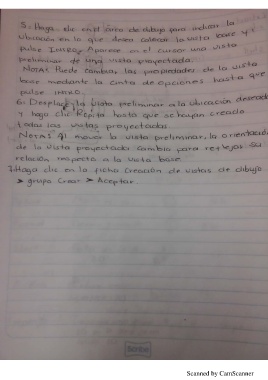 5. Haga clic en el área de dibujo para indicar la
ubicación en la que desea colocar la vista base y
pulse INTRO. Aparece en el cursor una vista
preliminar de una vista proyectada.
NOTA: Puede cambiar las propiedades de la vista
base mediante la cinta de opciones hasta que
pulse INTRO.
6. Desplace la vista preliminar a la ubicación deseada
y haga clic Repita hasta que se hayan creado
todas las vistas proyectadas
NOTA: Al mover la vista preliminar, la orientación
de la vista proyectada cambia para reflejar su
relación respecto a la vista base.
7. Haga clic en la ficha Creación de vistas de dibujo
> grupo Crear > Aceptar
Scanned by CamScanner